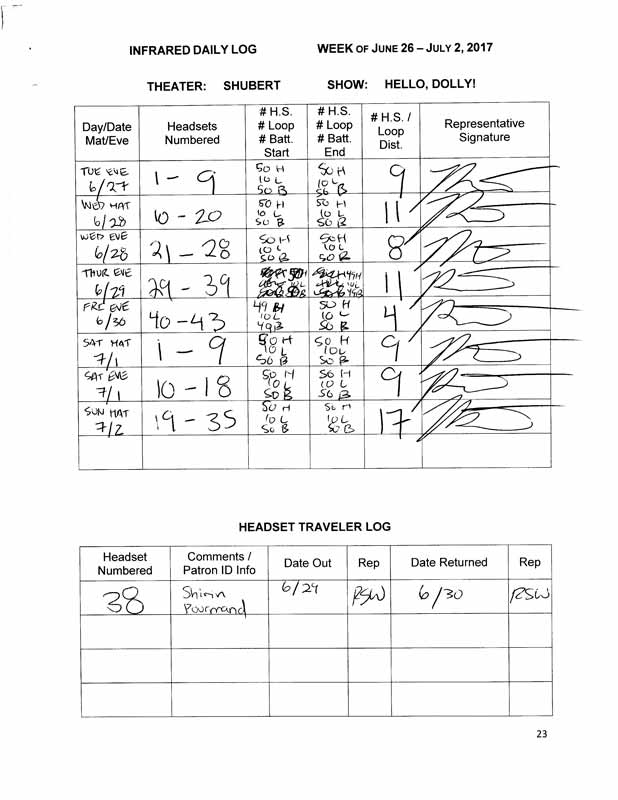 INFRARED DAILY LOG WEEK OF JUNE 26 – JULY 2, 2017
THEATER: SHUBERT SHOW: HELLO, DOLLY!
Day/Date Mat/Eve Headsets Numbered # H.S. # Loop # Batt. Start # H.S. # Loop # Batt. End # H.S. / Loop Dist. Representative Signature
TUE EVE 6/27 1 - 9 50 H 10 L 50 B 50 H 10 L 50 B 9
WED MAT 6/28 10 - 20 50 H 10 L 50 B 50 H 10 L 50 B 11
WED EVE 6/28 21 - 28 50 H 10 L 50 B 50 H 10 L 50 B 8
THUR EVE 6/29 29 - 39 50H 10L 50B 49H 10L 49B 11
FRI EVE 6/30 40 - 43 49 H 10 L 49 B 50 H 10 L 50 B 4
SAT MAT 7/1 1 - 9 50 H 10 L 50 B 50 H 10 L 50 B 9
SAT EVE 7/1 10 - 18 50 H 10 L 50 B 50 H 10 L 50 B 9
SUN MAT 7/2 19 - 35 50 H 10 L 50 B 50 H 10 L 50 B 17
HEADSET TRAVELER LOG
Headset Numbered Comments / Patron ID Info Date Out Rep Date Returned Rep
38 Pourmand 6/29 RSW 6/30 RSW
23